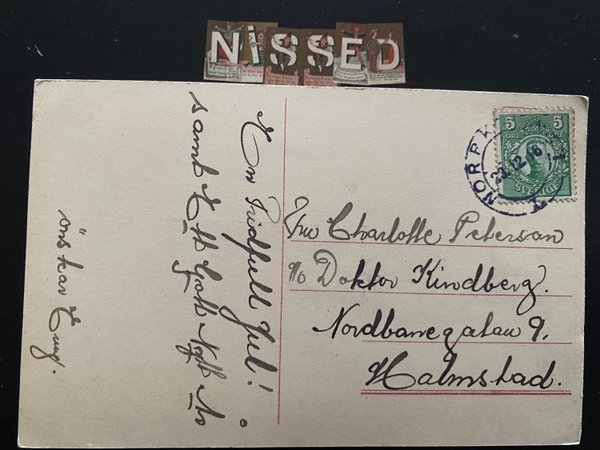 NiSSED
En Fridfull Jul!
samt Ett Gott Nytt År
önskar Eug.
5 5
ÖRE ÖRE
SVERIGE
NORRK
23.12.16
Fru Charlotte Peterson
c/o Doktor Kindberg.
Nordbanegatan 9.
Halmstad.